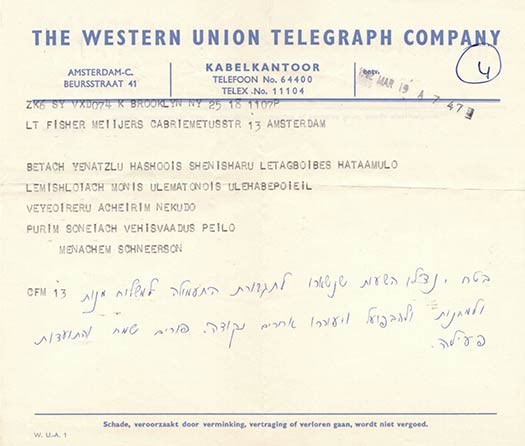 THE WESTERN UNION TELEGRAPH COMPANY
AMSTERDAM-C.
BEURSSTRAAT 41
KABELKANTOOR
TELEFOON No. 64400
TELEX.-No. 11104
MAR 19 A 7 47
4
ZK6 SY VXD074 K BROOKLYN NY 25 18 1107P
LT FISHER MEIIJERS GABRIEMETUSSTR 13 AMSTERDAM
BETACH YENATZLU HASHOOIS SHENISHARU LETAGBOIBES HATAAMULO
LEMISHLOIACH MONIS ULEMATONOIS ULEHABEPOIEIL
VEYEOIRERU ACHEIRIM NEKUDO
PURIM SONEIACH VEHISVAADUS PEILO
MENACHEM SCHNEERSON
CFM 13
בטח ינצלו השעות שנשארו לתגבורת התעמולה למשלוח מנות
ולמתנות ולהבפועל ויעוררו אחרים נקודה. פורים שמח והתועדות
פעילה.
Schade, veroorzaakt door verminking, vertraging of verloren gaan, wordt niet vergoed.
W. U.-A. 1